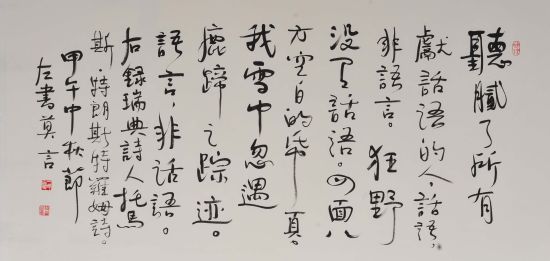 聽膩了所有
獻話語的人，話語，
非語言。狂野
没有話語。四面八
方空白的帋頁。
我雪中忽遇
鹿蹄之踪迹。
語言，非話語。
右錄瑞典詩人托馬
斯·特朗斯特羅姆詩。
甲午中秋節
左書莫言